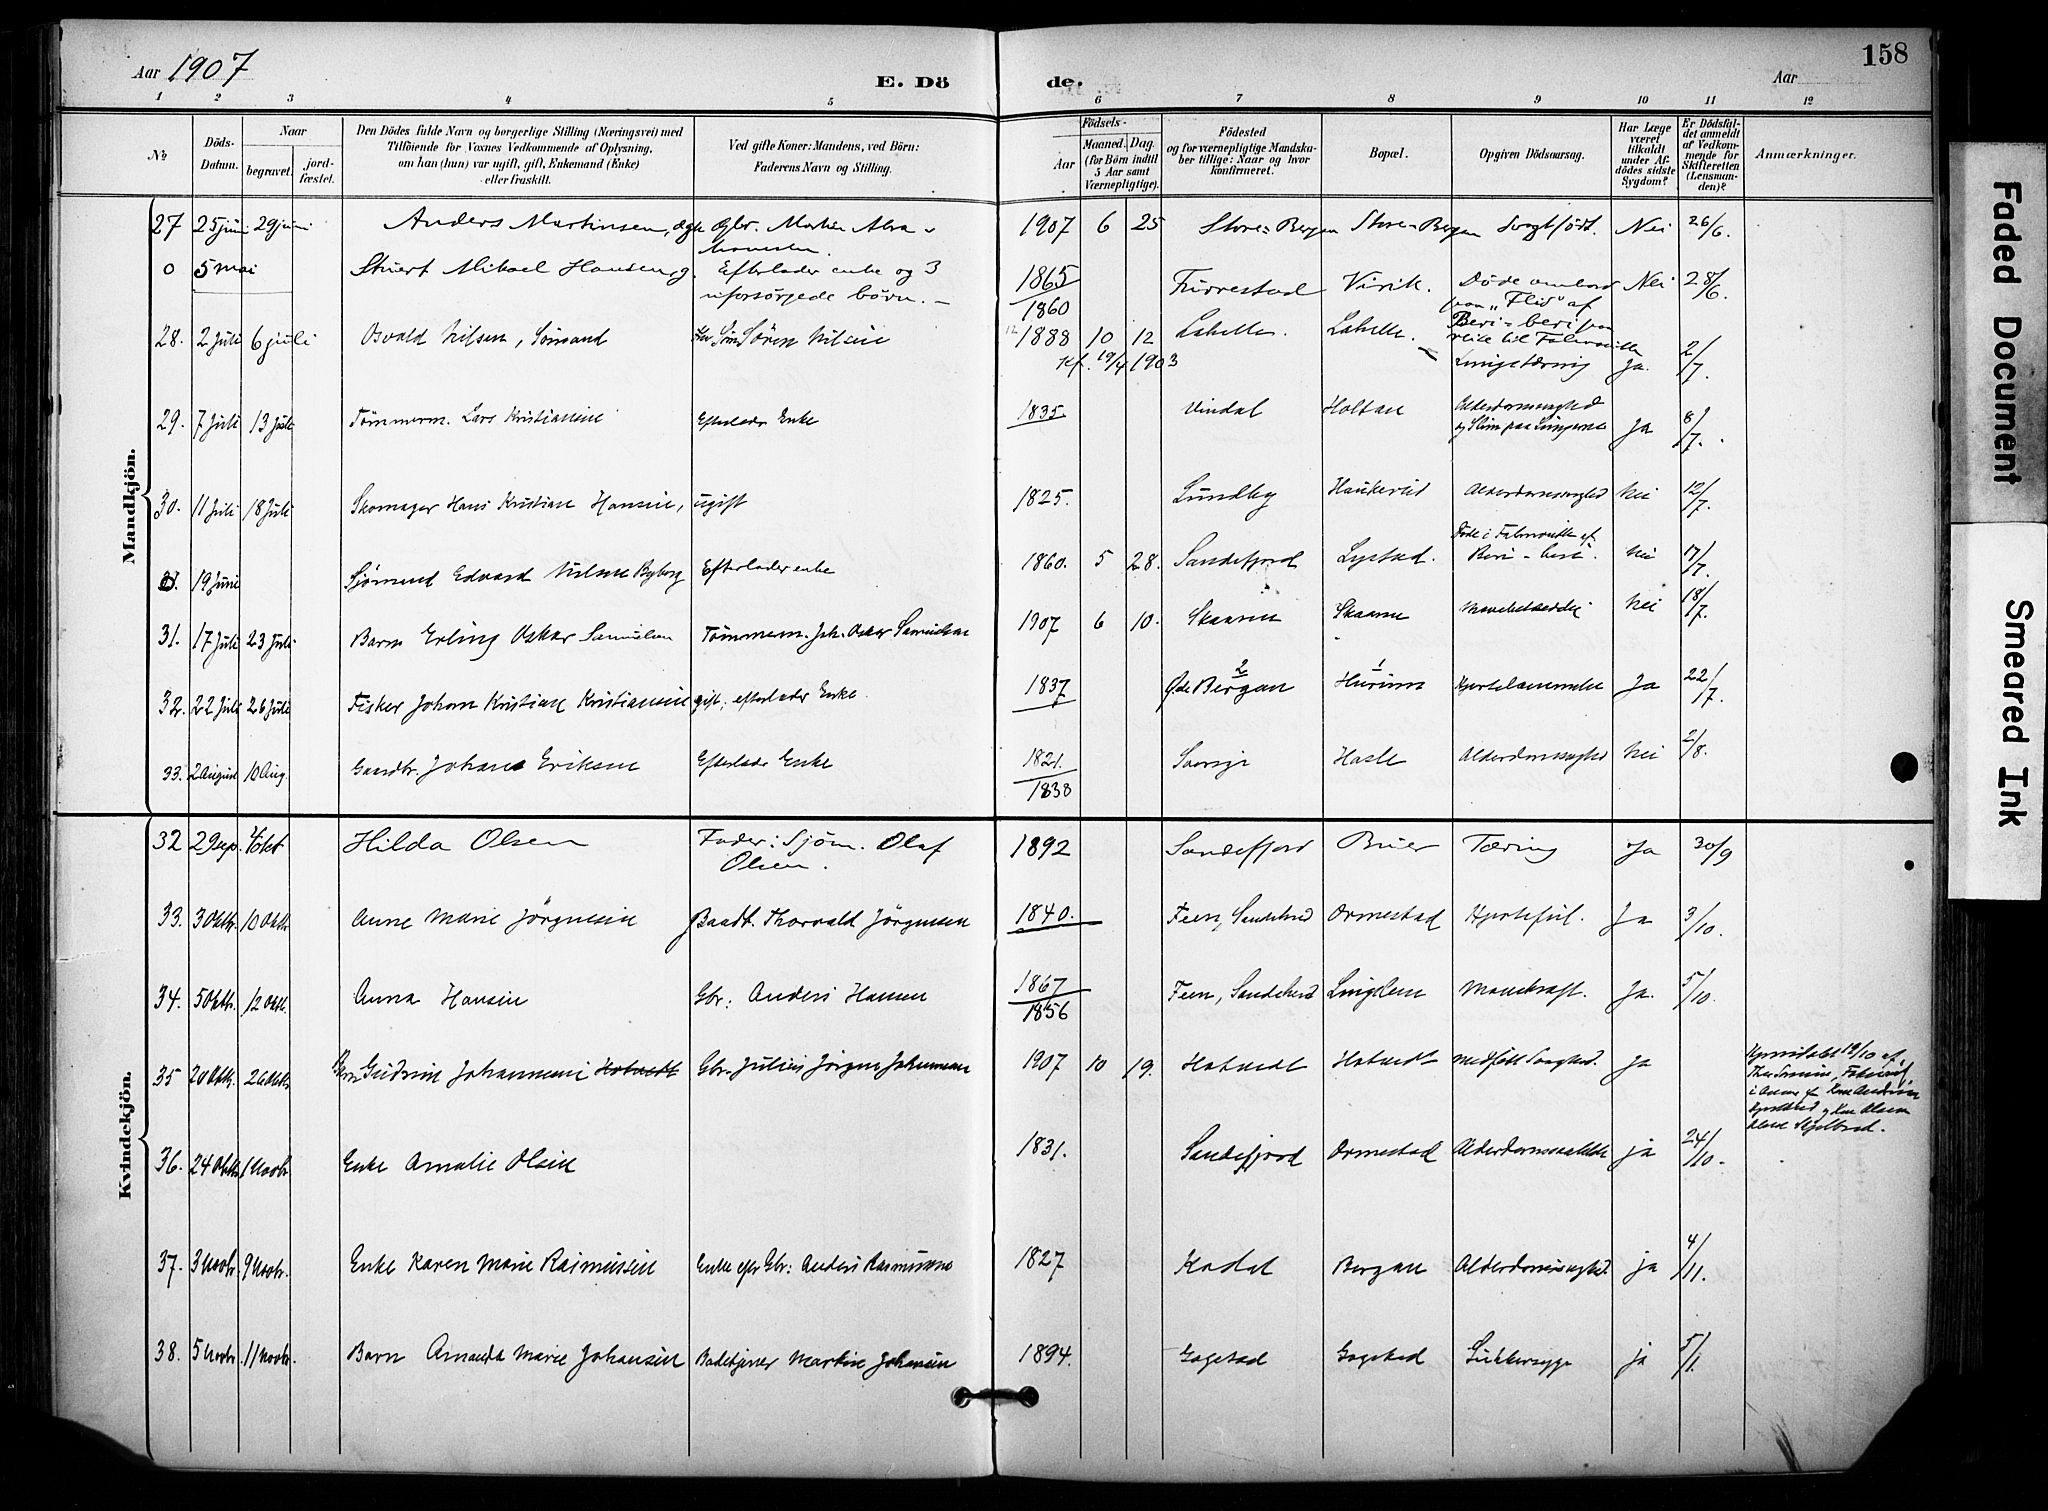 Aar 1907
E. Dö
de.
Aar
158
1 2 3 4 5 6 7 8 9 10 11 12
No
Döds-
Datum.
Naar
begravet.
jord-
fæstet.
Den Dödes fulde Navn og borgerlige Stilling (Næringsvei) med
Tilföiende for Voxnes Vedkommende af Oplysning,
om han (hun) var ugift, gift, Enkemand (Enke)
eller fraskilt.
Ved gifte Koner: Mandens, ved Börn:
Faderens Navn og Stilling.
Födsels-
Aar
Maaned.
Dag.
(for Börn indtil
5 Aar samt
Værnepligtige).
Födested
og for værnepligtige Mandska-
ber tillige: Naar og hvor
konfirmeret.
Bopæl.
Opgiven Dödsaarsag.
Har Læge
været
tilkaldt
under Af-
dödes sidste
Sygdom?
Er Dödsfal-
det anmeldt
af Vedkom-
mende for
Skifteretten
(Lensman-
den)?
Anmærkninger.
Mandkjön.
27 25 juni 29 juni Anders Martinsen, Gbr. Martin 1907 6 25 Store-Bergan Store-Bergan Svagtfödt. Nei 26/6.
0 5 mai Stuert Mikael Hansen, g. Efterlader enke og 3 1865 Furrestad Virik. Döde ombord Nei 28/6.
uforsörgede börn. - 1860 paa "Flid" af
Beri-beri paa
28. 2 Juli 6 juli Osvald Nilsen, Sömand Sören Nilsen 1888 10 12 Lahelle. Lahelle. reise til Falmouth
Kf. 19/4 1903 Lungetæring Ja. 2/7.
29. 7 Juli 13 Juli Tömmerm. Lars Kristiansen Efterlader Enke 1835. Vindal Holtan Alderdomssvaghed
og Slim paa Lungerne Ja 8/7.
30. 11 Juli 18 Juli Skomager Hans Kristian Hansen, ugift 1825. Lundby Haukeröd Alderdomssvaghed Nei 12/7.
Död i Falmouth af
0. 19 Juni Sjömand Edvard Nilsen Byberg Efterlader enke 1860. 5 28. Sandefjord Lystad. Beri-beri. Nei 17/7.
31. 17 Juli 23 Juli Barn Erling Oskar Samuelsen Tömmerm. Joh. Oskar Samuelsen 1907 6 10. Skaaren Skaaren Nei 18/7.
32. 22 Juli 26 Juli Fisker Johan Kristian Kristiansen gift, efterlader Enke. 1837 Øde Bergan Hurum Hjertelammelse Ja 22/7.
33. 2 August 10 Aug. Gaardbr. Johan Eriksen Efterlader Enke 1821. Hasle Alderdomssvaghed Nei 2/8.
1838
Kvindekjön.
32 29 sep. 4 okt Hilda Olsen Fader: Sjöm. Olaf 1892 Sandefjord Bruer Tæring Ja 30/9
Olsen.
33. 3 Oktbr. 10 Oktbr. Anne Marie Jörgensen Baadt. Thorvald Jörgensen 1840. Feen, Sandeherred Ormestad Hjertefeil. Ja 3/10.
34. 5 Oktbr. 12 Oktb. Anna Hansen Gbr: Anders Hansen 1867 Feen, Sandeherred Lingelem Mavekræft. Ja. 5/10.
1856
35 20 Oktb. 26 Oktbr Barn Gudrun Johannesen Hotvedt Gbr. Julius Jörgen Johannesen 1907 10 19. Hotvedt Hotvedt Medfödt Svaghed. Ja Hjemmedöbt 19/10 af
36. 24 Oktbr 1 Novbr. Enke Amalie Olsen 1831. Sandefjord Ormestad Alderdomssvakhet ja 24/10.
37. 3 Novbr. 9 Novbr. Enke Karen Marie Rasmussen Enke efter Gbr: Anders Rasmussen 1827 Kodal Bergan Alderdomssvaghed. ja 4/11.
38. 5 Novbr. 11 Novbr. Barn Amanda Marie Johansen Badetjener Martin Johansen 1894. Gogstad Gogstad Sukkersyge ja 5/1.
Faded Document
Smeared Ink